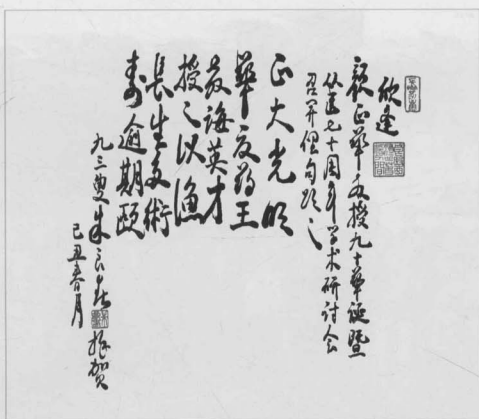 欣逢
颜正華教授九十華诞暨
从医七十周年学术研讨会
召开俚句颂之
正大光明
華夏药王
教诲英才
授之以渔
長生有術
寿逾期颐
九三叟朱良春
贺
己丑春月